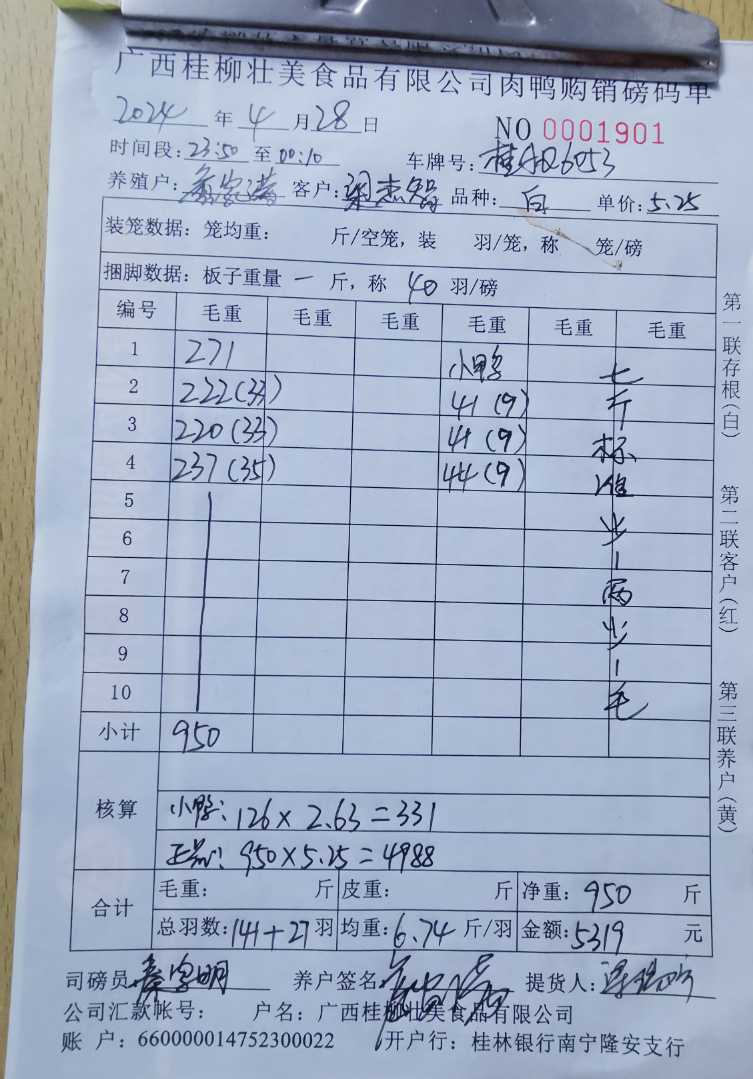 广西桂柳壮美食品有限公司肉鸭购销磅码单
2024 年 4 月 28 日 NO 0001901
时间段: 23:50 至 00:10 车牌号: 桂
养殖户: 客户: 梁志智 品种: 白 单价: 5.25
装笼数据: 笼均重: 斤/空笼, 装 羽/笼, 称 笼/磅
捆脚数据: 板子重量 一 斤, 称 40 羽/磅
编号 毛重 毛重 毛重 毛重 毛重 毛重
1 271 小鸭
2 222(33) 41(9)
3 220(33) 41(9)
4 237(35) 44(9)
5
6
7
8
9
10
七斤标准少1两少1毛
小计 950
核算
小鸭: 126×2.63=331
正品: 950×5.25=4988
合计
毛重: 斤 皮重: 斤 净重: 950 斤
总羽数: 141+27 羽 均重: 6.74 斤/羽 金额: 5319 元
司磅员 养户签名 提货人:
公司汇款帐号: 户名: 广西桂柳壮美食品有限公司
账 户: 660000014752300022 开户行: 桂林银行南宁隆安支行
第一联存根(白)
第二联客户(红)
第三联养户(黄)